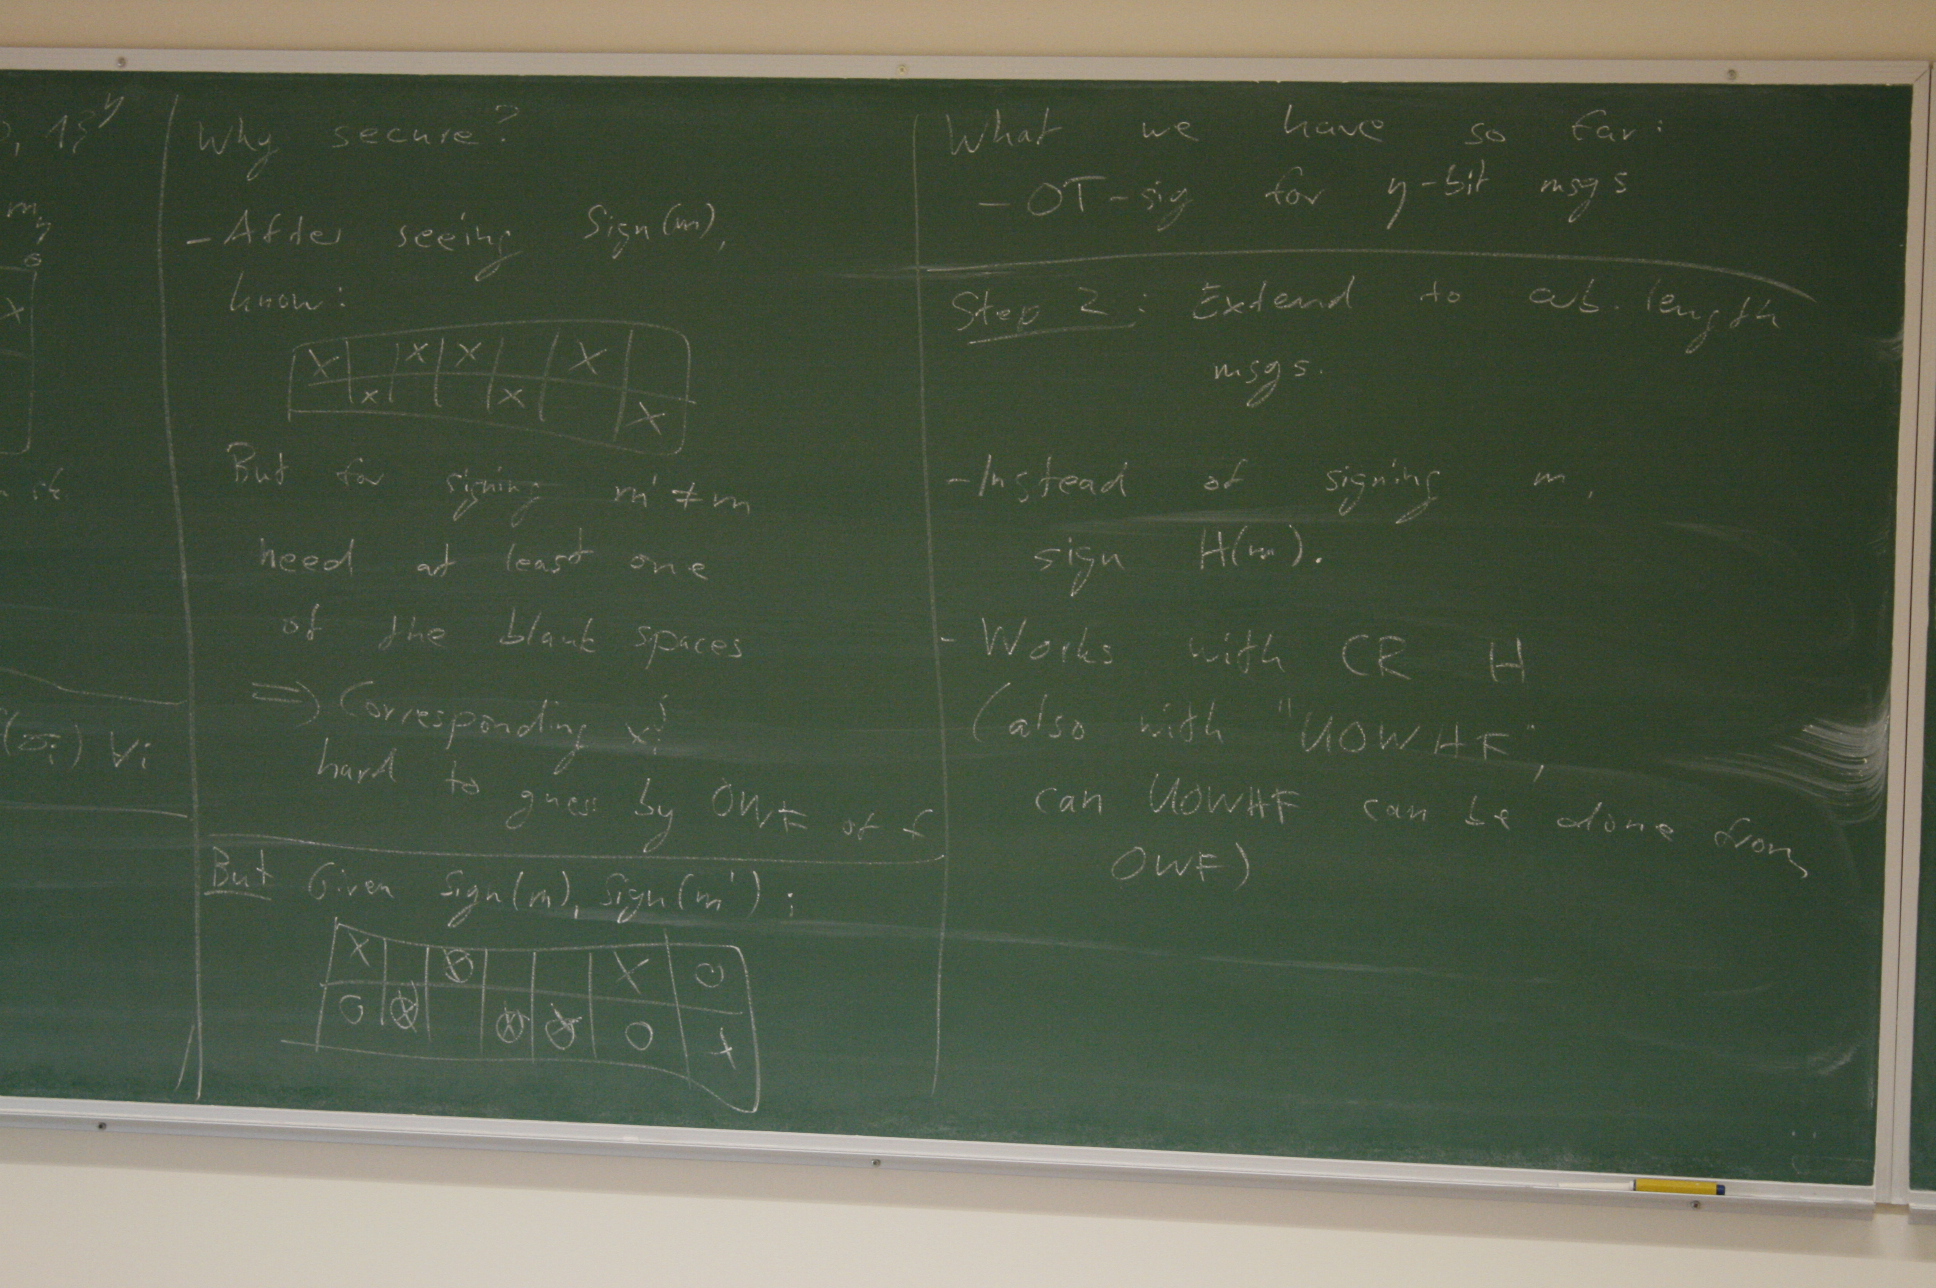 , 1}^η
m_η
X
(σ_i) ∀i
Why secure?
- After seeing Sign(m),
know:
X X X X
x x X
But for signing m' ≠ m
need at least one
of the blank spaces
=> Corresponding
hard to guess by OWF of f
But Given Sign(m), Sign(m'):
X ⊗ X O
O ⊗ ⊗ ⊗ O X
What we have so far:
- OT-sig for η-bit msgs
Step 2: Extend to arb. length
msgs.
- Instead of signing m,
sign H(m).
- Works with CR H
(also with "UOWHF",
can UOWHF can be done from
OWF)